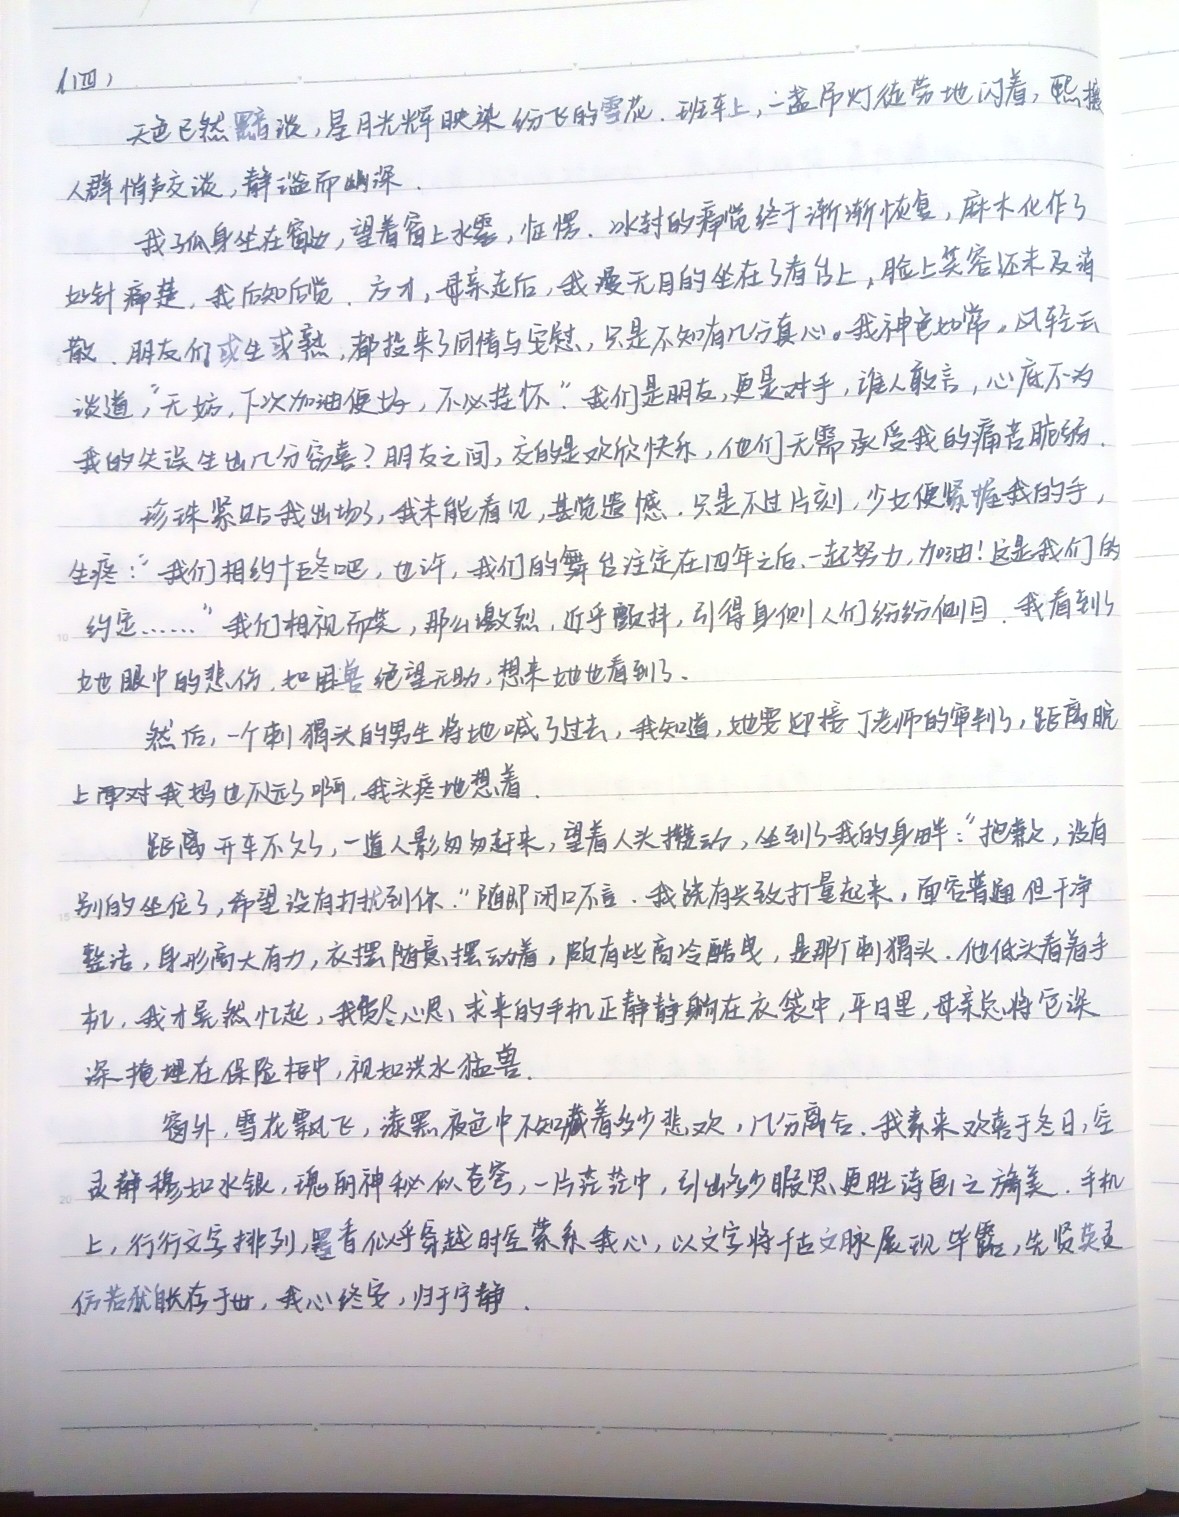 (四)
天色已然黯淡，星月光辉映染纷飞的雪花．班车上，一盏吊灯徒劳地闪着，熙攘
人群悄声交谈，静谧而幽深．
我孤身坐在窗边，望着窗上水雾，怔愣．冰封的痛觉终于渐渐恢复，麻木化作了
如针痛楚，我后知后觉．方才，母亲走后，我漫无目的坐在了看台上，脸上笑容还未及消
散．朋友们或生或熟，都投来了同情与安慰，只是不知有几分真心。我神色如常，风轻云
淡道，“无妨，下次加油便好，不必挂怀”．我们是朋友，更是对手，谁人敢言，心底不为
我的失误生出几分窃喜？朋友之间，交的是欢欣快乐，他们无需承受我的痛苦脆弱．
珍珠紧贴我出场了，我未能看见，甚觉遗憾．只是不过片刻，少女便紧握我的手，
生疼：“我们相约十五冬吧，也许，我们的舞台注定在四年之后、一起努力，加油！这是我们的
约定……”我们相视而笑，那么激烈，近乎颤抖，引得身侧人们纷纷侧目．我看到了
她眼中的悲伤，如困兽绝望无助，想来她也看到了、
然后，一个刺猬头的男生将她喊了过去，我知道，她要迎接丁老师的审判了，距离晚
上面对我妈也不远了啊，我头疼地想着．
距离开车不久了，一道人影匆匆赶来，望着人头攒动，坐到了我的身畔：“抱歉，没有
别的坐位了，希望没有打扰到你．”随即闭口不言．我饶有兴致打量起来，面容普通但干净
整洁，身形高大有力，衣摆随意摆动着，颇有些高冷酷曳，是那个刺猬头．他低头看着手
机，我才晃然忆起，我费尽心思、求来的手机正静静躺在衣袋中，平日里，母亲总将它深
深掩埋在保险柜中，视如洪水猛兽．
窗外，雪花飘飞，漆黑夜色中不知藏着多少悲欢，几分离合．我素来欢喜于冬日，空
灵静穆如水银，瑰丽神秘似苍穹，一片茫茫中，引出多少暇思更胜诗画之旖美．手机
上，行行文字排列，墨香似乎穿越时空萦系我心，以文字将千古文脉展现毕露，先贤英灵
仿若犹自长存于世，我心终安，归于宁静．